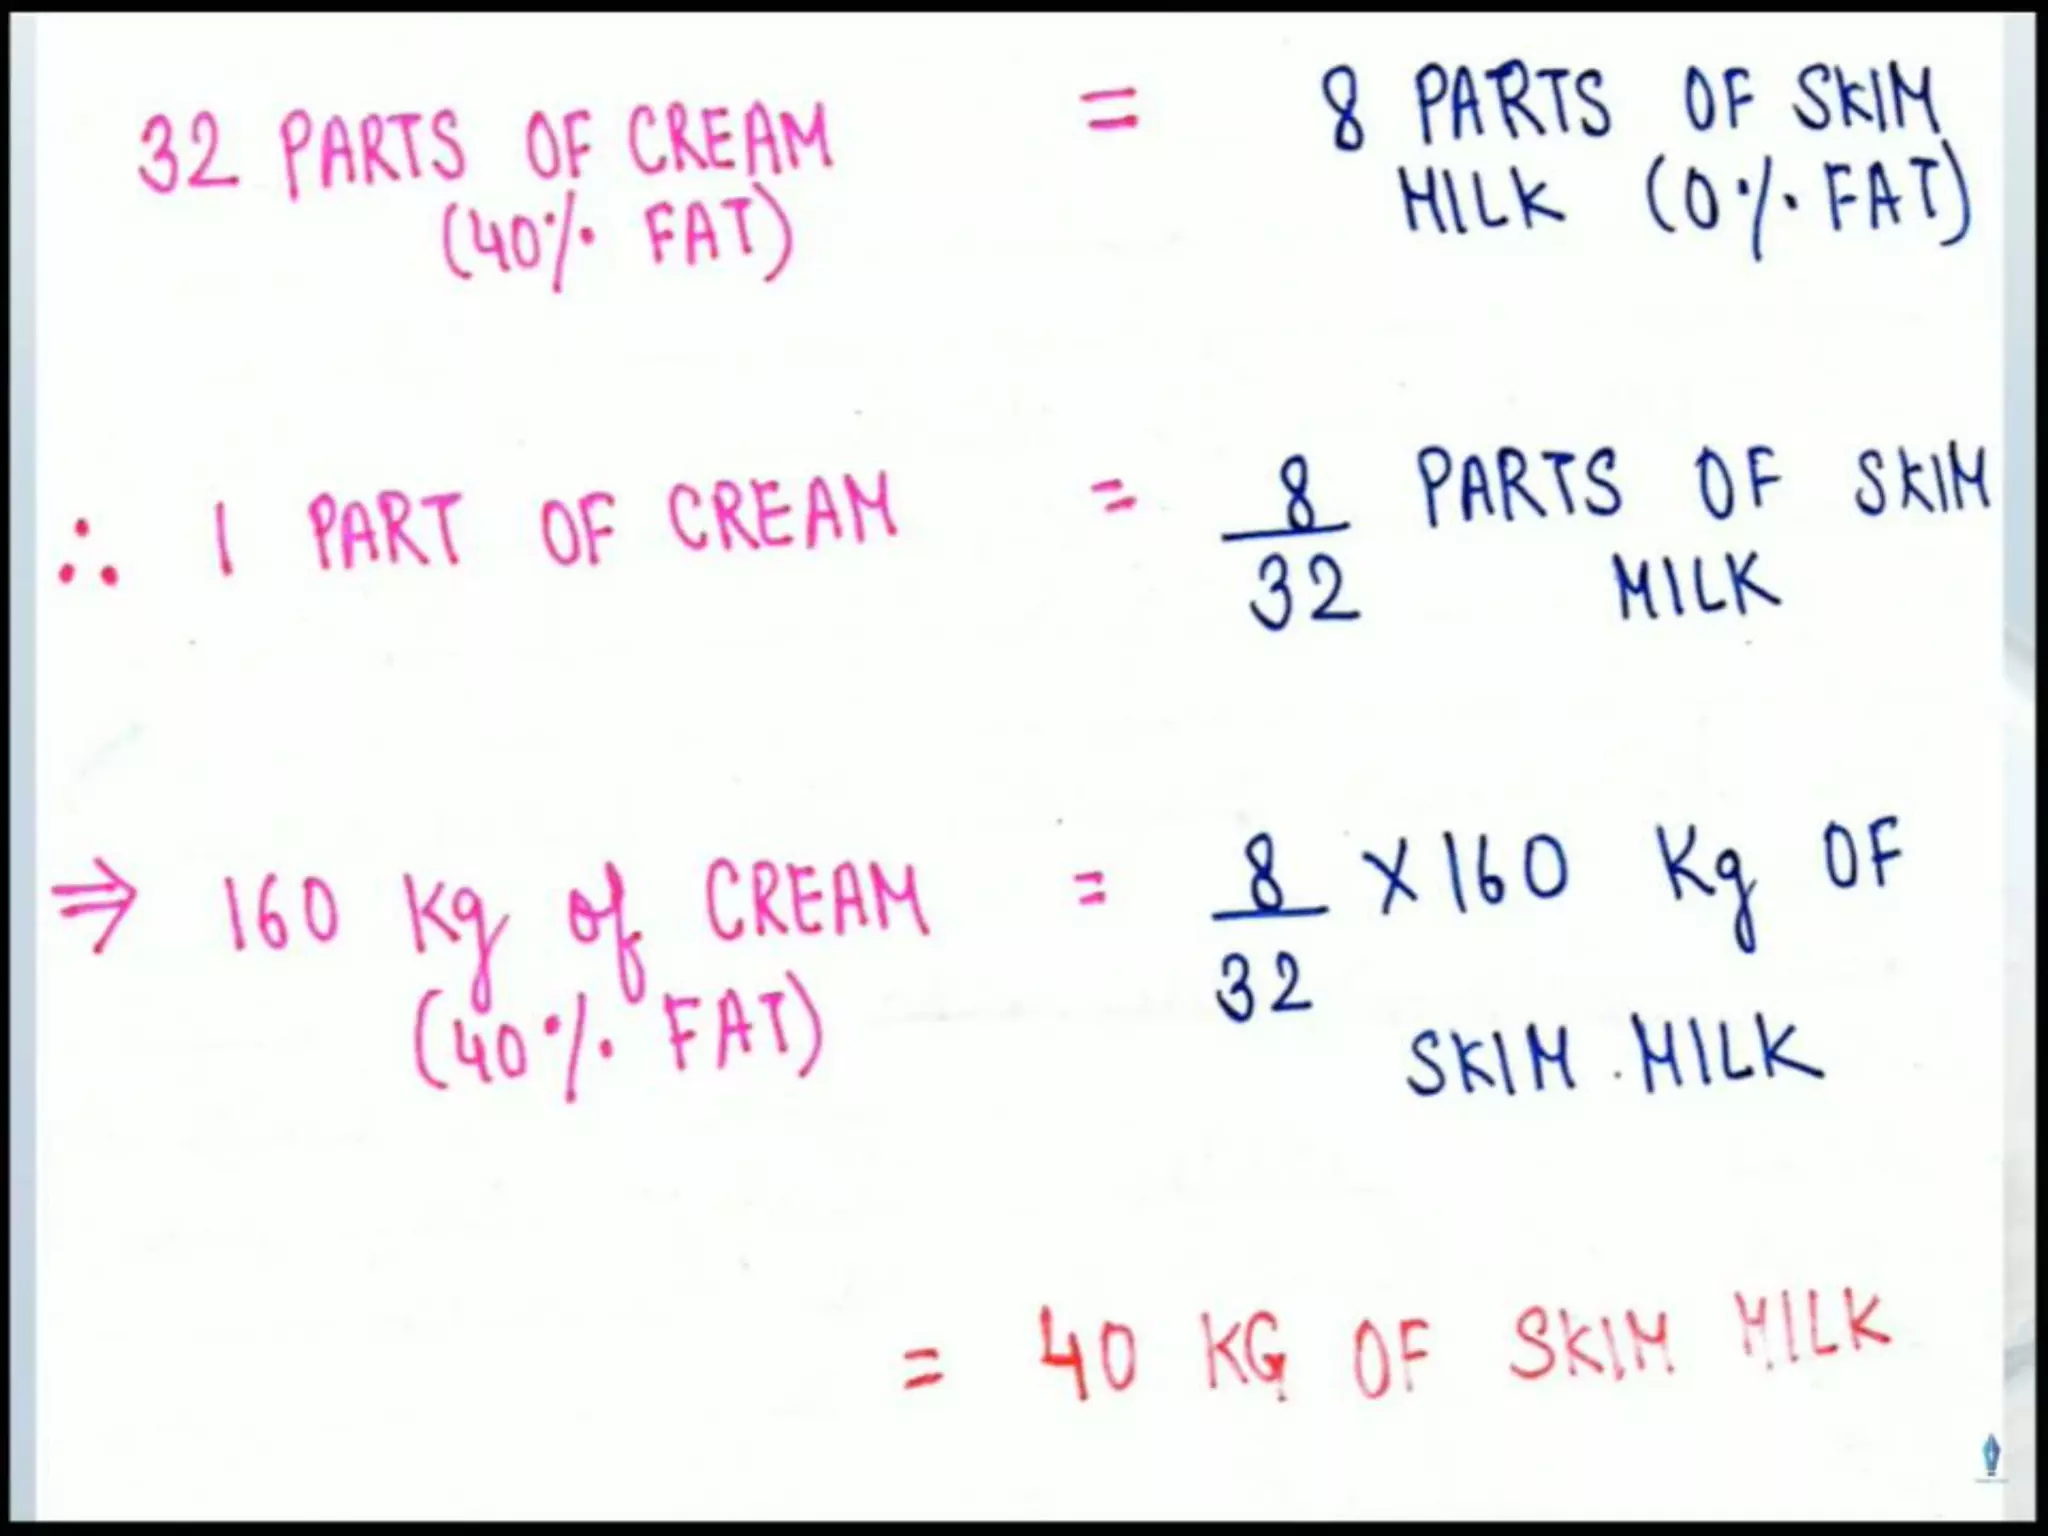 32 PARTS OF CREAM = 8 PARTS OF SKIM
(40% FAT) MILK (0% FAT)
∴ 1 PART OF CREAM = 8/32 PARTS OF SKIM
MILK
⇒ 160 Kg of CREAM = 8/32 X 160 Kg OF
(40% FAT) SKIM MILK
= 40 KG OF SKIM MILK